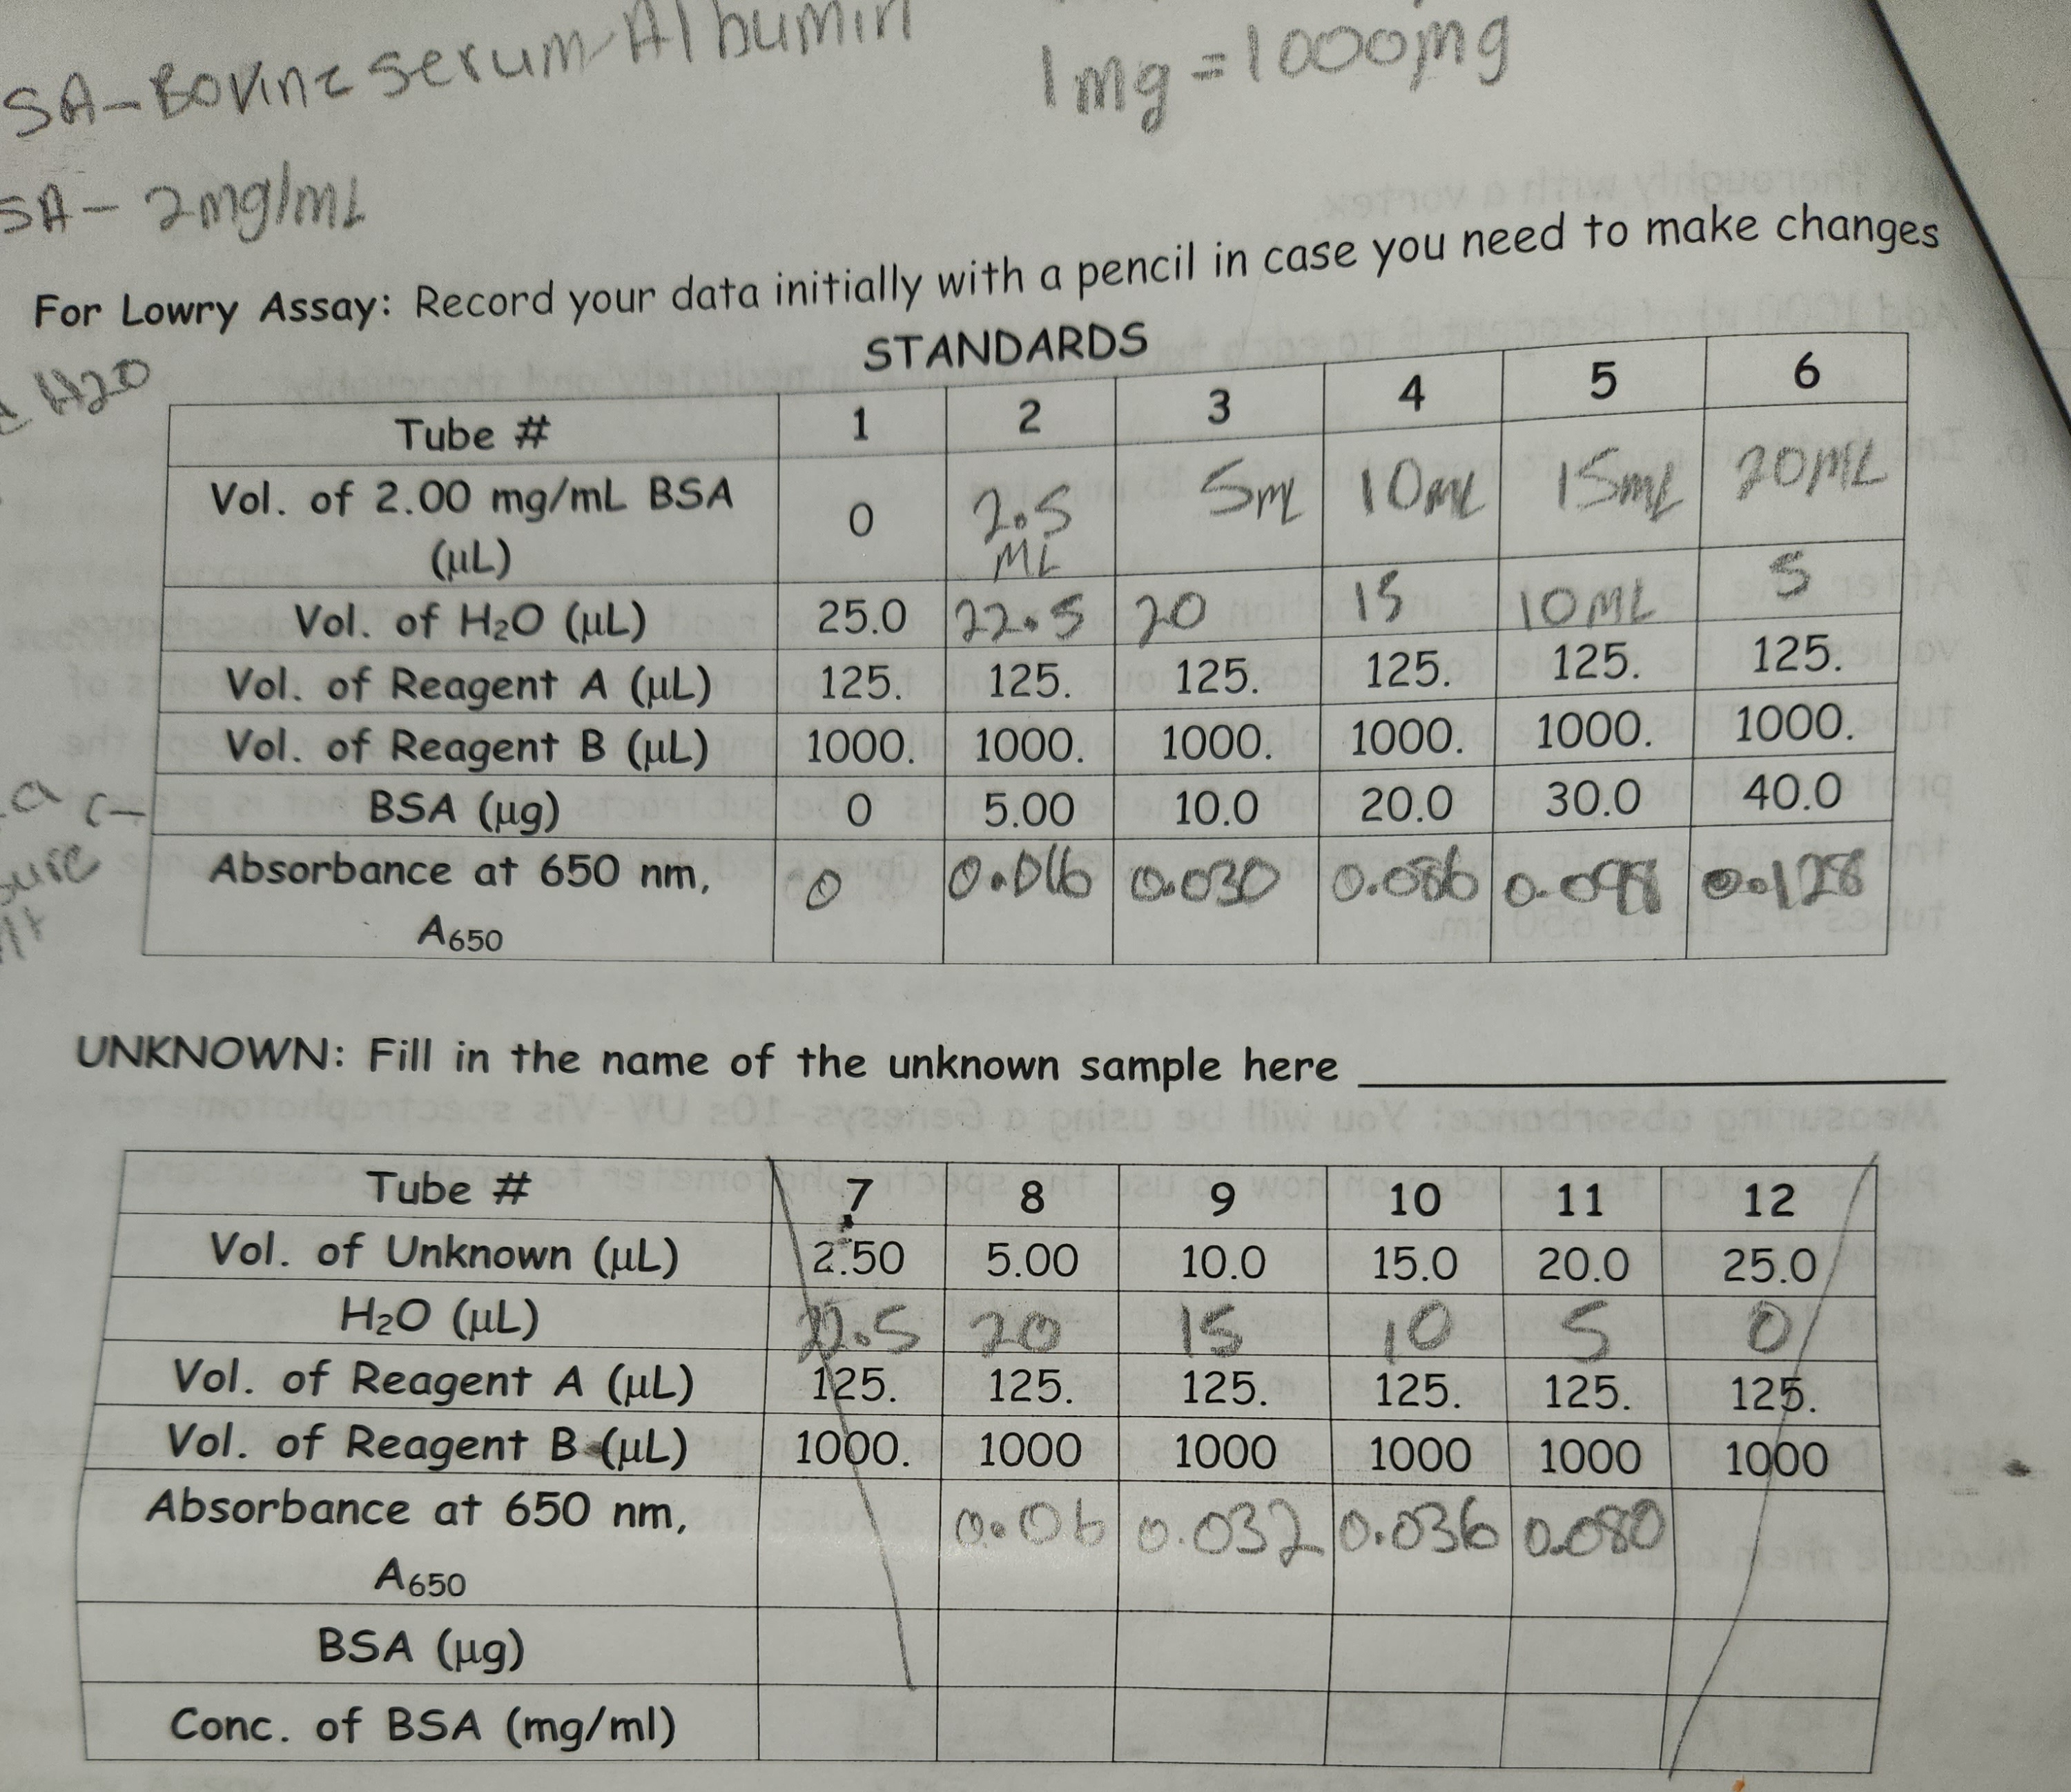 SA-Bovine serum Albumin
1mg = 1000µg
SA- 2mg/mL
For Lowry Assay: Record your data initially with a pencil in case you need to make changes
STANDARDS
H20
Tube # 1 2 3 4 5 6
Vol. of 2.00 mg/mL BSA (µL) 0 2.5 ML 5mL 10mL 15mL 20ML
Vol. of H₂O (µL) 25.0 22.5 20 15 10ML 5
Vol. of Reagent A (µL) 125. 125. 125. 125. 125. 125.
Vol. of Reagent B (µL) 1000. 1000. 1000. 1000. 1000. 1000.
BSA (µg) 0 5.00 10.0 20.0 30.0 40.0
Absorbance at 650 nm, A₆₅₀ 0 0.016 0.030 0.086 0.098 0.128
UNKNOWN: Fill in the name of the unknown sample here
Tube # 7 8 9 10 11 12
Vol. of Unknown (µL) 2.50 5.00 10.0 15.0 20.0 25.0
H₂O (µL) 22.5 20 15 10 5 0
Vol. of Reagent A (µL) 125. 125. 125. 125. 125. 125.
Vol. of Reagent B (µL) 1000. 1000 1000 1000 1000 1000
Absorbance at 650 nm, A₆₅₀ 0.06 0.032 0.036 0.080
BSA (µg)
Conc. of BSA (mg/ml)